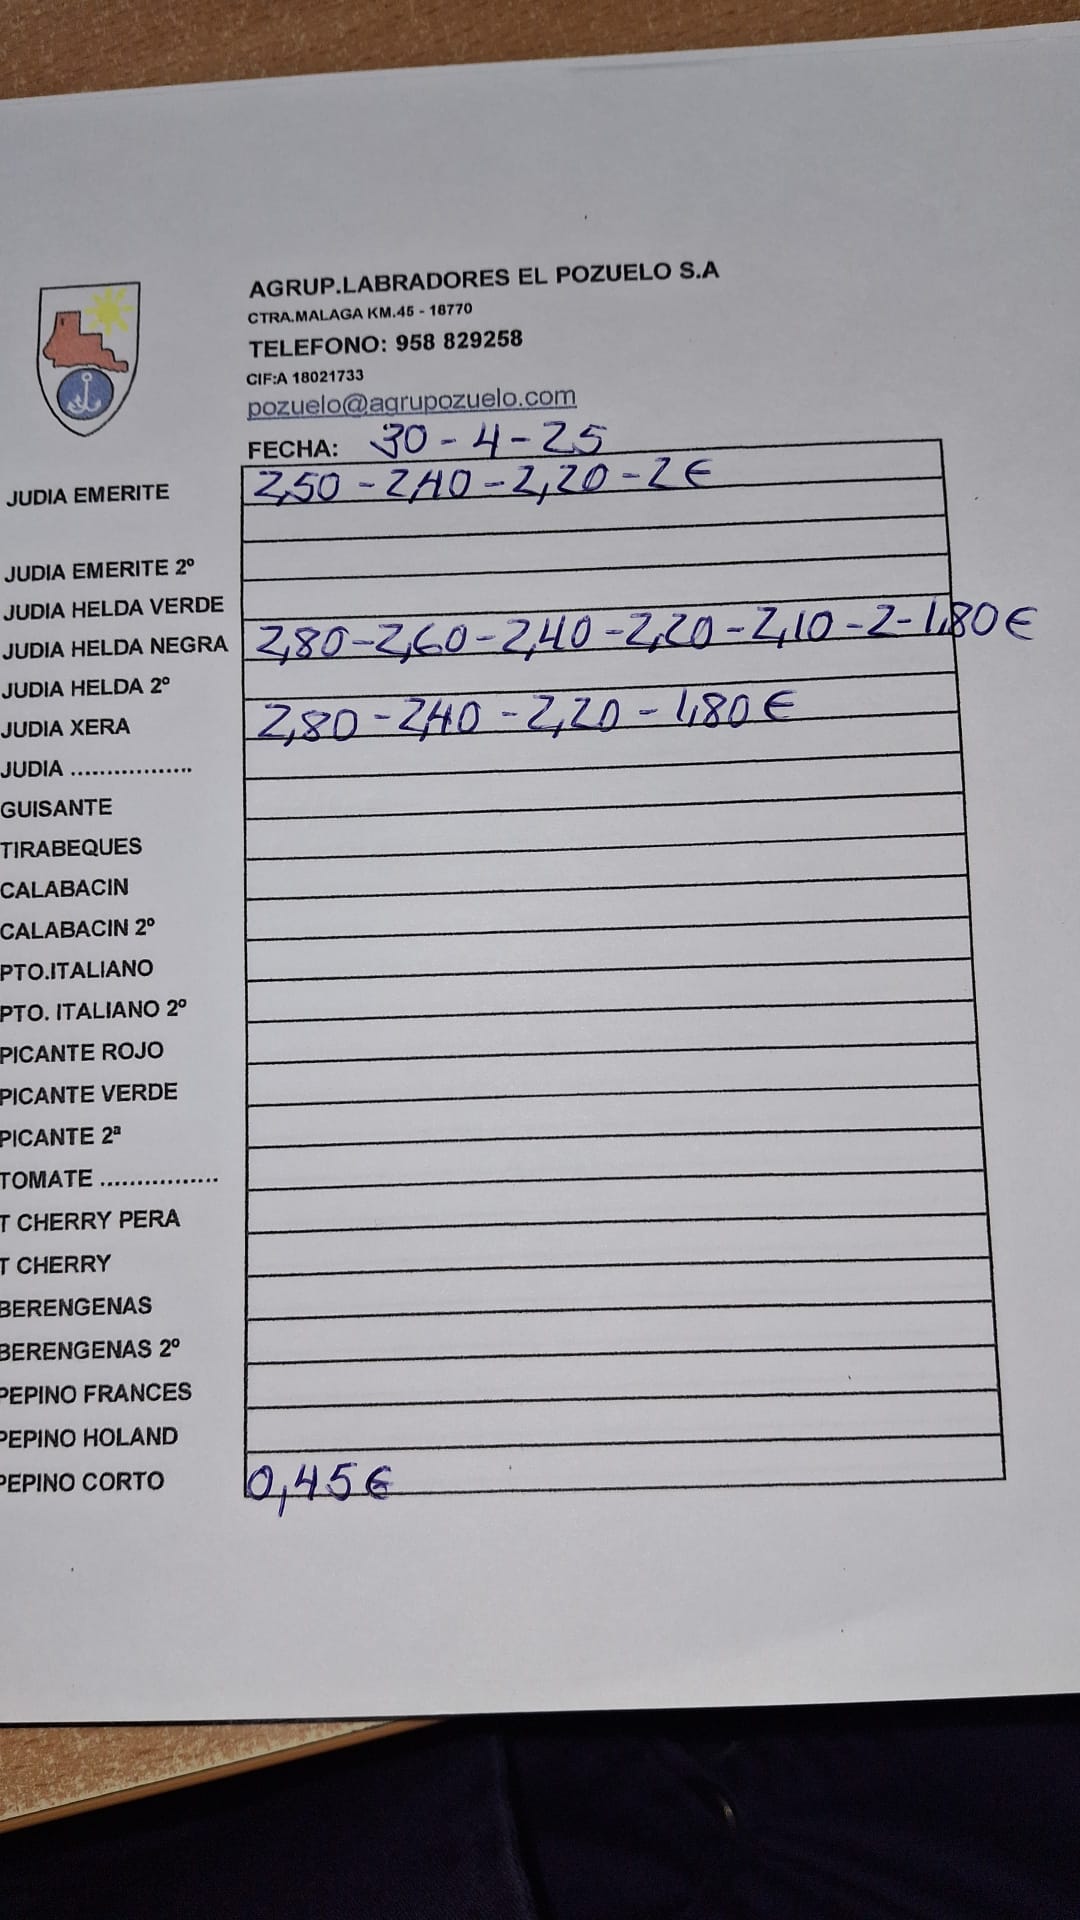 AGRUP.LABRADORES EL POZUELO S.A
CTRA.MALAGA KM.45 - 18770
TELEFONO: 958 829258
CIF:A 18021733
pozuelo@agrupozuelo.com
FECHA: 30-4-25
JUDIA EMERITE 2,50-2,40-2,20-2€
JUDIA EMERITE 2º
JUDIA HELDA VERDE
JUDIA HELDA NEGRA 2,80-2,60-2,40-2,20-2,10-2-1,80€
JUDIA HELDA 2º
JUDIA XERA 2,80-2,40-2,20-1,80€
JUDIA .................
GUISANTE
TIRABEQUES
CALABACIN
CALABACIN 2º
PTO.ITALIANO
PTO. ITALIANO 2º
PICANTE ROJO
PICANTE VERDE
PICANTE 2ª
TOMATE ................
T CHERRY PERA
T CHERRY
BERENGENAS
BERENGENAS 2º
PEPINO FRANCES
PEPINO HOLAND
PEPINO CORTO 0,45€